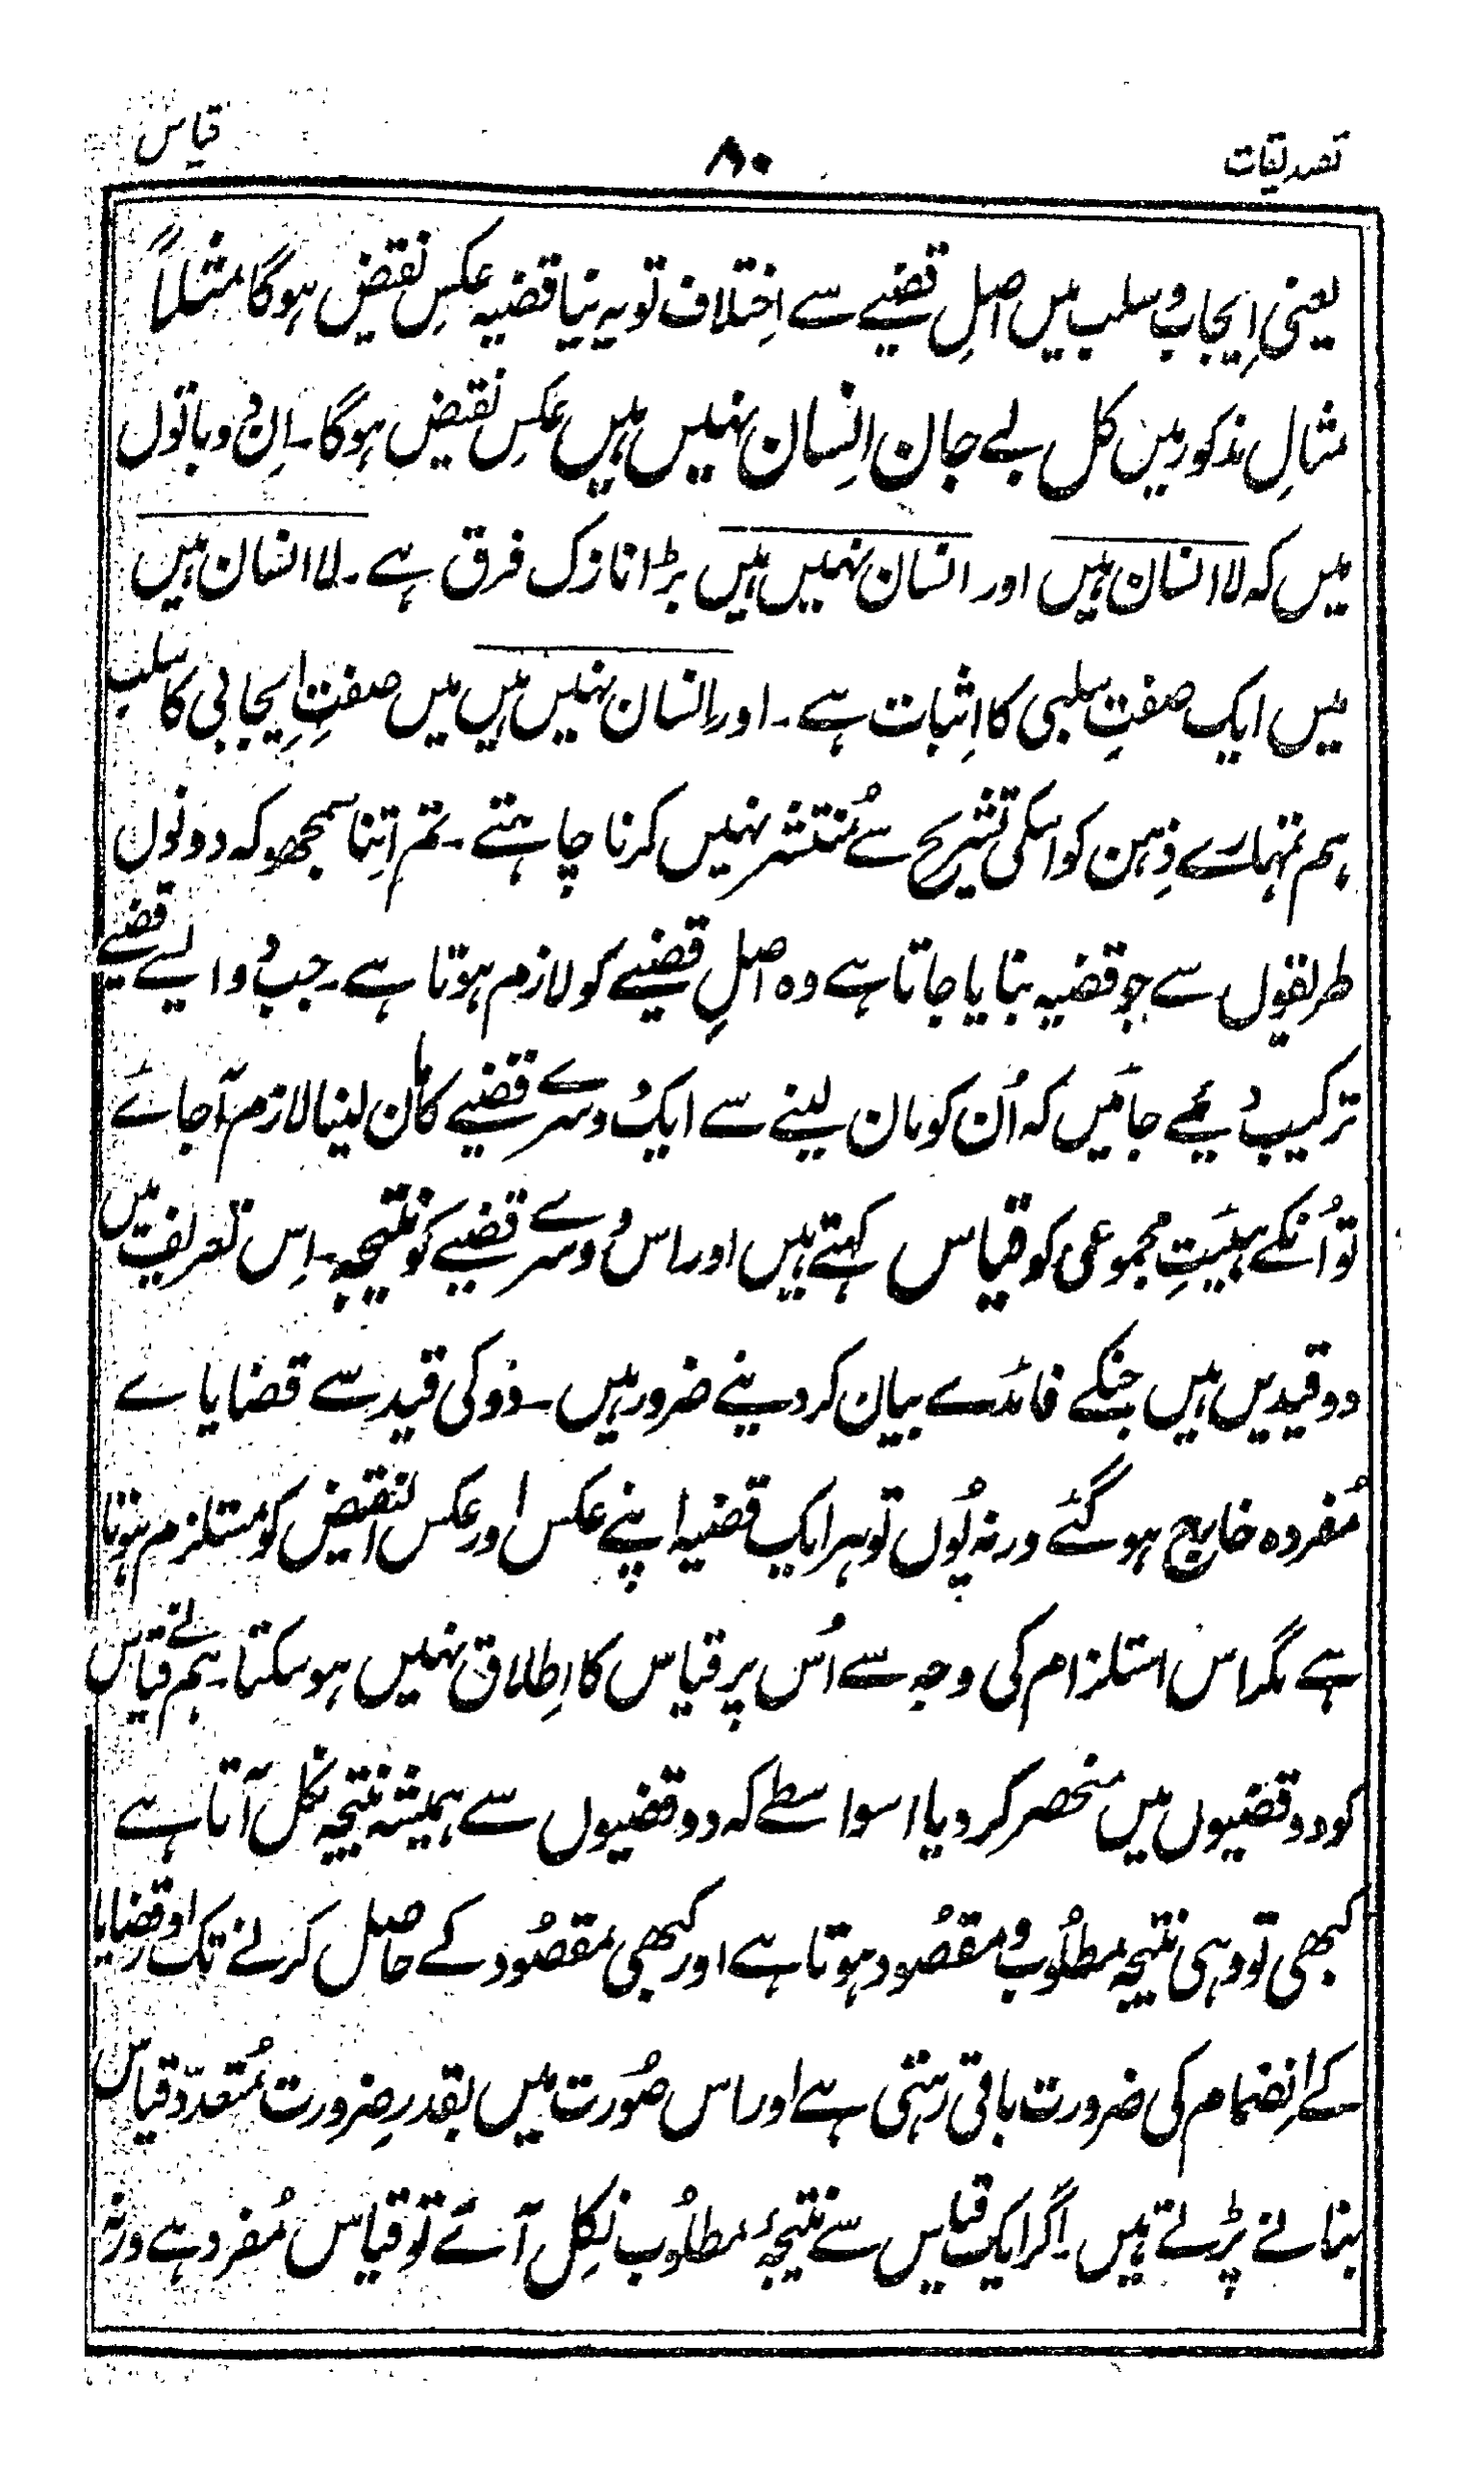 تصدیقات
۸۰
قیاس
یعنی اِیجاب و سلب میں اصلِ قضیے سے اِختلاف تو یہ نیا قضیہ عکسِ نقیض ہوگا مثلاً
مثالِ مذکور میں کل بے جان اِنسان نہیں ہیں عکسِ نقیض ہوگا۔ اِن دو باتوں
میں کہ لا انسان ہیں اور انسان نہیں ہیں بڑا نازک فرق ہے۔ لا انسان ہیں
میں ایک صفتِ سلبی کا اِثبات ہے۔ اور اِنسان نہیں ہیں میں صفتِ اِیجابی کا سلب
ہم تمہارے ذِہن کو اسکی تشریح سے مُنتشر نہیں کرنا چاہتے۔ تم اِتنا سمجھو کہ دونوں
طریقوں سے جو قضیہ بنایا جاتا ہے وہ اصلِ قضیے کو لازم ہوتا ہے۔ جب دُو ایسے قضیے
ترکیب دُیئے جائیں کہ اُن کو مان لینے سے ایک دُوسرے قضیے کا مان لینا لازم آجائے
تو اُنکے ہیئتِ مجموعی کو قیاس کہتے ہیں اور اس دُوسرے قضیے کو نتیجہ۔ اِس تعریف میں
دو قیدیں ہیں جنکے فائدے بیان کر دینے ضرور ہیں۔ دُو کی قید سے قضایاے
مُفردہ خارج ہو گئے ورنہ یُوں تو ہر ایک قضیہ اپنے عکس اور عکس النقیض کو مستلزم ہوتا
ہے مگر اس استلزام کی وجہ سے اُس پر قیاس کا اِطلاق نہیں ہو سکتا۔ ہم نے قیاس
کو دو قضیوں میں منحصر کر دیا اسواسطے کہ دو قضیوں سے ہمیشہ نتیجہ نکل آتا ہے
کبھی تو وہی نتیجہ مطلُوب و مقصُود ہوتا ہے اور کبھی مقصُود کے حاصل کرنے تک اور قضایا
کے اِنضمام کی ضرورت باقی رہتی ہے اور اس صُورت میں بقدرِ ضرورت مُتعدّد قیاس
بنانے پڑتے ہیں۔ اگر ایک قیاس سے نتیجۂ مطلُوب نِکل آئے تو قیاس مُفرد ہے ورنہ